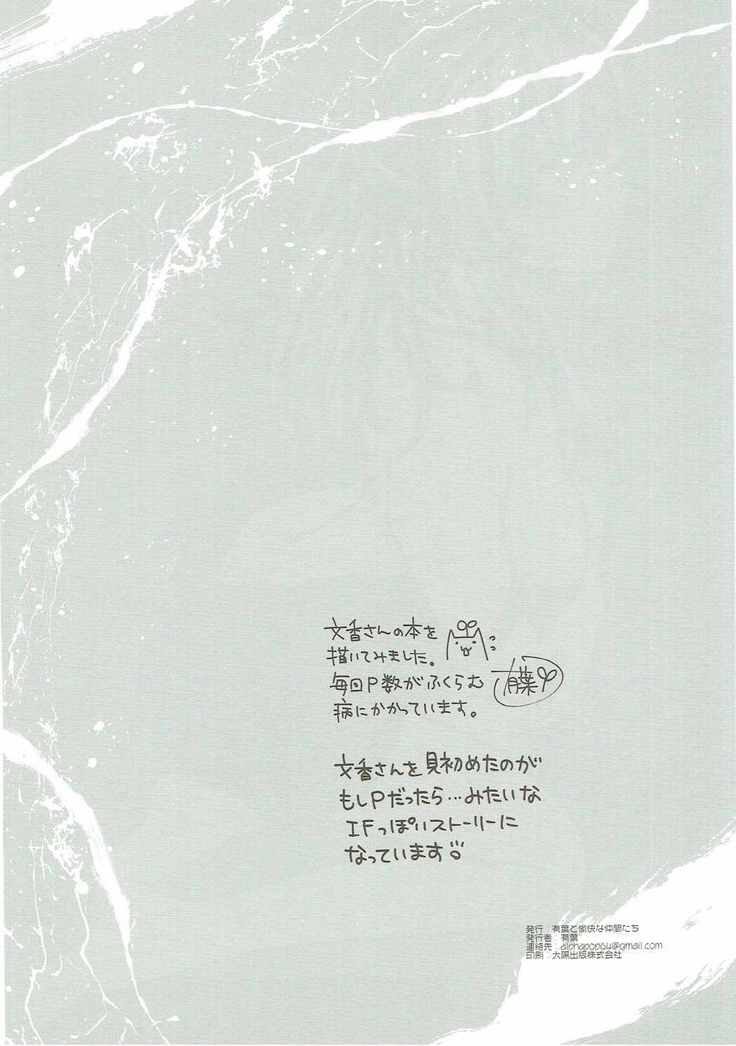 文香さんの本を
描いてみました。
毎回P数がふくらむ
病にかかっています。
有葉
文香さんを見初めたのが
もしPだったら…みたいな
IFっぽいストーリーに
なっています
発行：有葉と愉快な仲間たち
発行者：有葉
連絡先：
印刷：大陽出版株式会社